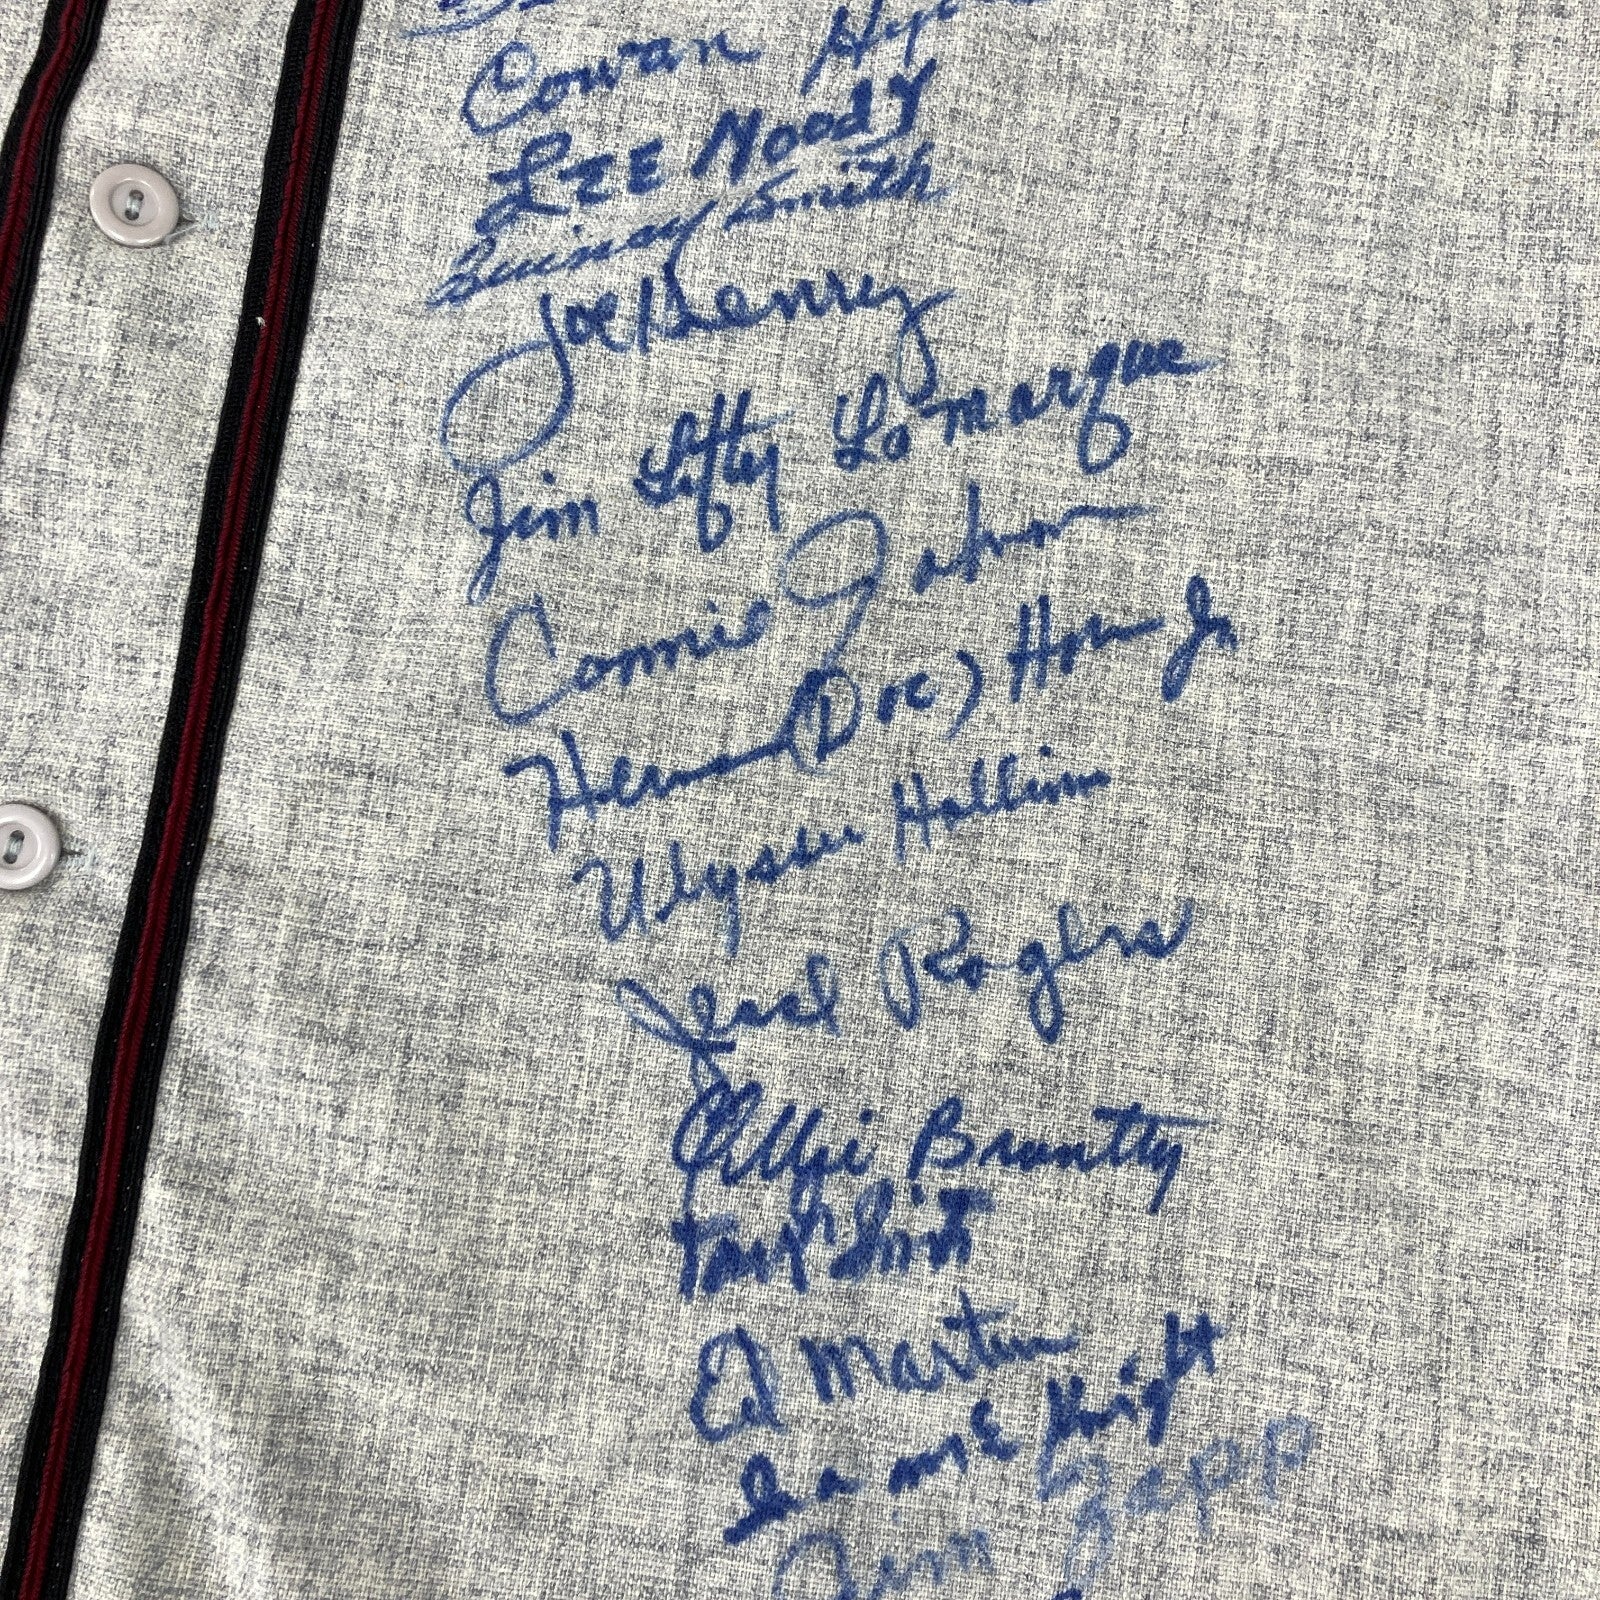 Cowan
LEE MOODY
Quincy Smith
Joe Henry
Jim Lefty LaMarque
Connie Johnson
Herman (Doc) Horn Jr
Ulysses Hollim
Jesse Rogers
Cliffie Brantley
Ed Martin
Ira McKnight
Jim Zapp